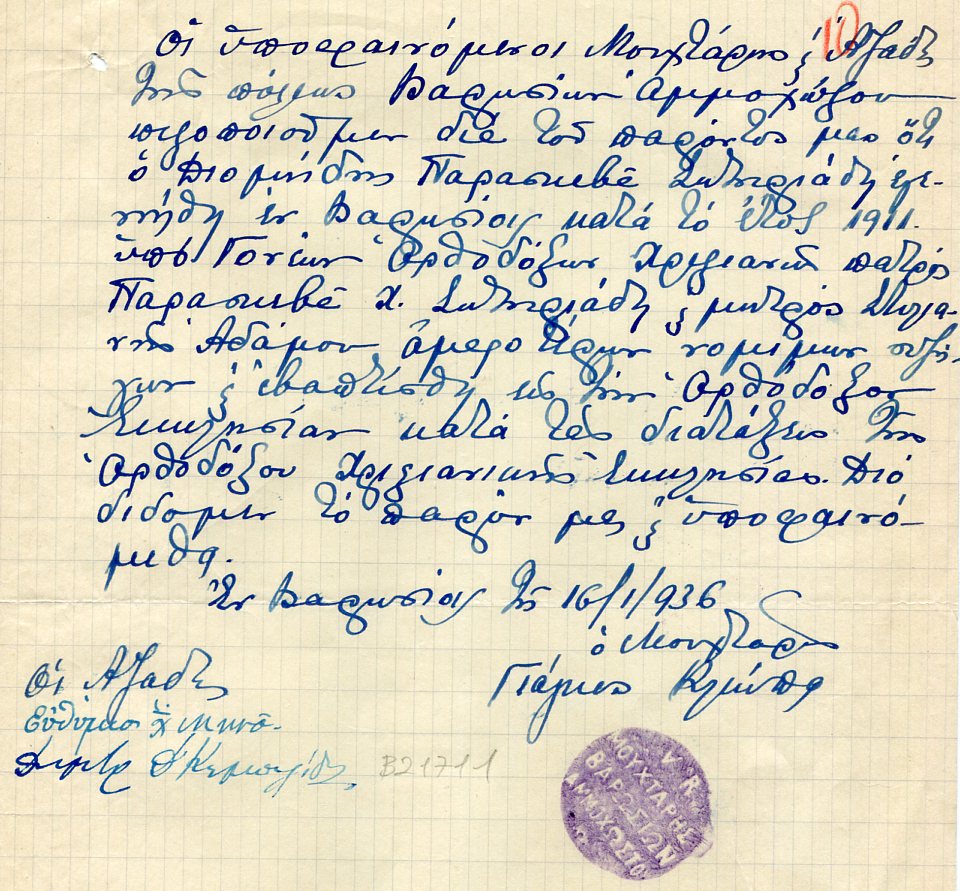 10
Οἱ ὑποφαινόμενοι Μουχτάρης & Ἀζάδες
τῆς πόλεως Βαρωσίων Ἀμμοχώστου
πιστοποιοῦμεν διὰ τοῦ παρόντος μας ὅτι
ὁ Διομήδης Παρασκευᾶ Σωτηριάδη ἐγε-
ννήθη ἐν Βαρωσίοις κατὰ τὸ ἔτος 1911.
ὑπὸ Γονέων Ὀρθοδόξων Χριστιανῶν πατρὸς
Παρασκευᾶ Χ. Σωτηριάδη & μητρὸς Στυλια-
νῆς Ἀδάμου, ἀμφοτέρων νομίμων συζύ-
γων & ἐβαπτίσθη εἰς τὴν Ὀρθόδοξον
Ἐκκλησίαν κατὰ τὰς διατάξεις τῆς
Ὀρθοδόξου Χριστιανικῆς Ἐκκλησίας. Διὸ
δίδομεν τὸ παρὸν μας & ὑποφαινό-
μεθα.
Ἐν Βαρωσίοις τῇ 16/1/936
ὁ Μουχτάρης
Γιάγκος
Οἱ Ἀζάδες
Εὐθύμιος Χ" Μηνᾶ.
Δημητρ
B21711
V R
ΜΟΥΧΤΑΡΗΣ
ΒΑΡΩΣΙΩΝ
ΑΜΜΟΧΩΣΤΟ